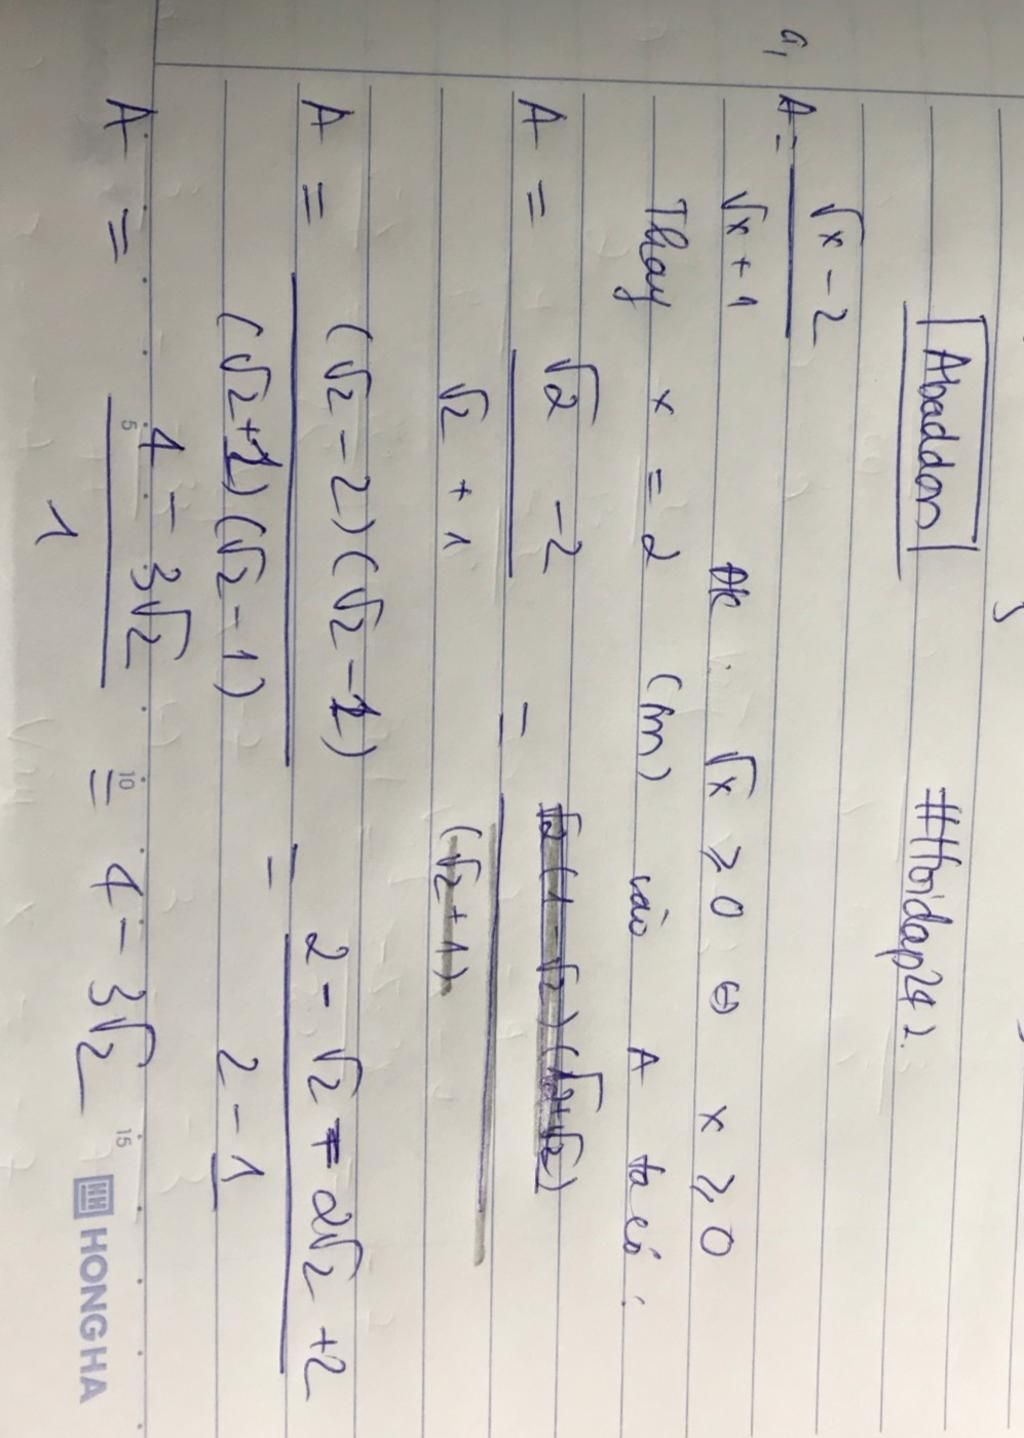 Abaddon #Hoidap247.
a, A = (√x - 2)/(√x + 1) ĐK: √x ≥ 0 ⇔ x ≥ 0
Thay x = 2 (tm) vào A ta có:
A = (√2 - 2)/(√2 + 1) =
A = (√2 - 2)(√2 - 1)/(√2 + 1)(√2 - 1) = (2 - √2 - 2√2 + 2)/(2 - 1)
A = (4 - 3√2)/1 = 4 - 3√2
5 10 15
HONG HA